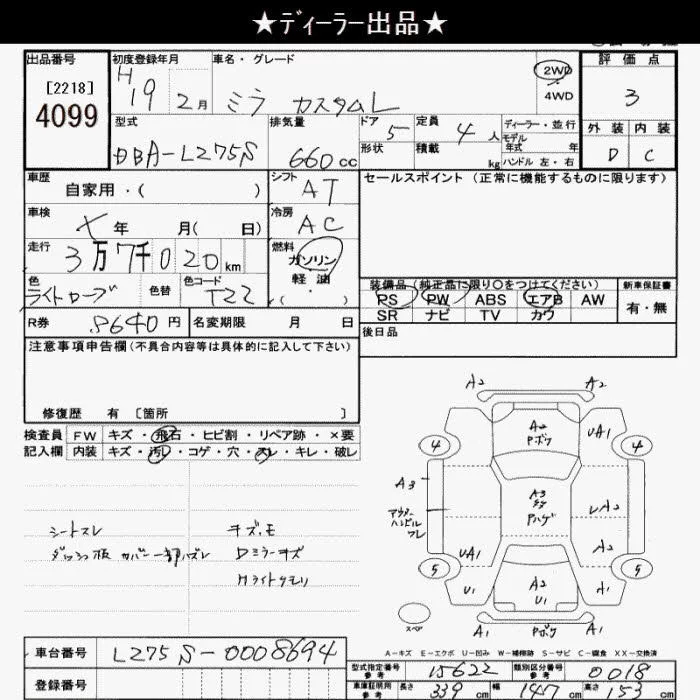 ★ディーラー出品★
出品番号 初度登録年月 車名・グレード 評価点
[2218] H19 2月 ミラ カスタムL 2WD・4WD 3
4099
型式 排気量 ドア 5 定員 4人 ディーラー・並行 外装 内装
DBA-L275S 660cc 形状 積載 kg モデル年式 年 D C
ハンドル 左・右
車歴 自家用・( ) シフト AT セールスポイント(正常に機能するものに限ります)
車検 年 月( 日) 冷房 AC
走行 3万7千020km 燃料 ガソリン・軽油・( )
色 ライトローブ 色替 色コード T22
装備品(純正品に限り○をつけてください) 新車保証書
PS PW ABS エアB AW 有・無
SR ナビ TV カワ
R券 8640円 名変期限 月 日 後日品
注意事項申告欄(不具合内容等は具体的に記入して下さい)
修復歴 有 [箇所 ]
検査員 FW キズ・飛石・ヒビ割・リペア跡・×要
記入欄 内装 キズ・汚レ・コゲ・穴・スレ・キレ・破レ
シートスレ キズ・モ
ダッシュ板 カバー一部ハズレ Dミラーキズ
Hライトクモリ
A2 A2
4 A2 Pボケ UA1 4
A3 A3 Pハゲ A2
アウターハンドルスレ
UA1 A2
5 U1 A2 U1 A1 5
スペア A1 Pボケ A1
A-キズ E-エクボ U-凹み W-補修跡 S-サビ C-腐食 XX-交換済
車台番号 L275S-0008694
登録番号
型式指定番号 参考 15622 類別区分番号 参考 0018
車庫証明用 参考 長さ 339cm 幅 147cm 高さ 153cm